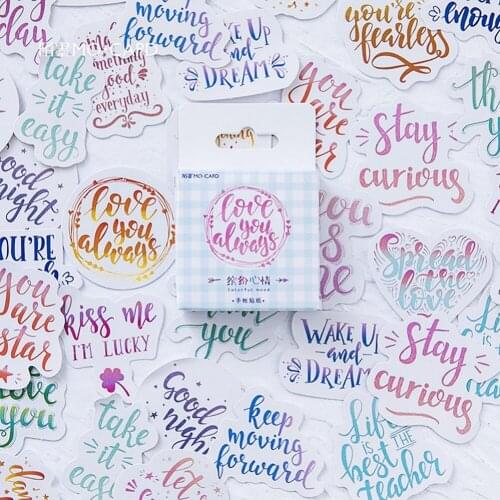 keep
moving
forward
Wake Up
and
DREAM
you're
fearless
enough
day
陌墨MO·CARD
take
it
easy
something
good
everyday
you
are
stay
curious
Good
night
love
you
always
陌墨MO·CARD
love
you
always
缤纷心情
Colorful mood
·手帐贴纸·
YOU'RE
Spread
the
love
you
are
star
kiss me
I'M LUCKY
you
WAKE UP
and
DREAM
stay
curious
love
you
Good
night
take
it
easy
keep
moving
forward
Life
is THE
best
teacher
let